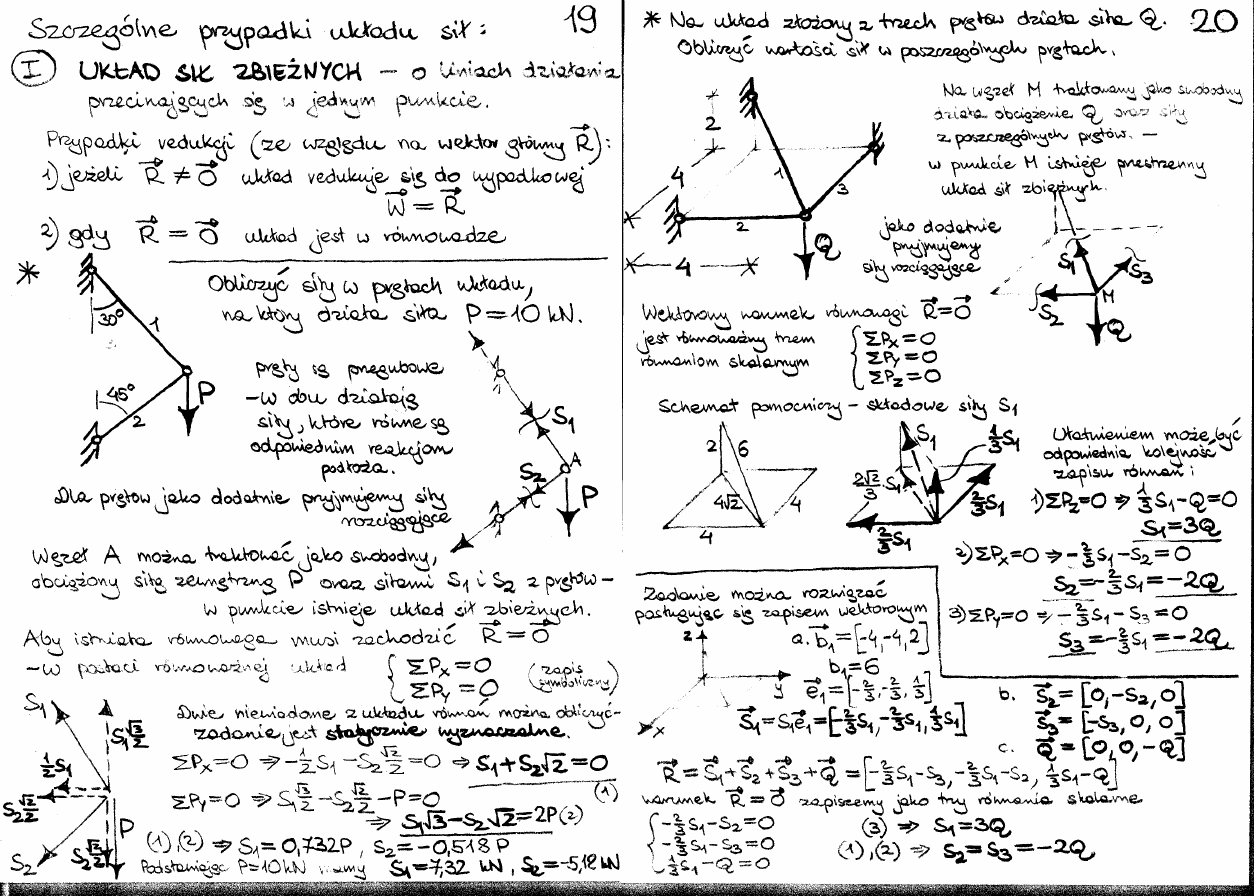 Szczególne przypadki układu sił: 19
I UKŁAD SIŁ ZBIEŻNYCH – o liniach działania
przecinających się w jednym punkcie.
Przypadki redukcji (ze względu na wektor główny R⃗):
1) jeżeli R⃗ ≠ 0⃗ układ redukuje się do wypadkowej
W⃗ = R⃗
2) gdy R⃗ = 0⃗ układ jest w równowadze
* Obliczyć siły w prętach układu,
na który działa siła P = 10 kN.
30°
1
45°
2
P
pręty są przegubowe
– w obu działają
siły, które równe są
odpowiednim reakcjom
podłoża.
Dla prętów jako dodatnie przyjmujemy siły
rozciągające
S₁
A
S₂
P
Węzeł A można traktować jako swobodny,
obciążony siłą zewnętrzną P oraz siłami S₁ i S₂ z prętów –
w punkcie istnieje układ sił zbieżnych.
Aby istniała równowaga musi zachodzić R⃗ = 0⃗
– w postaci równoważnej układ { ΣPx = 0 (zapis
ΣPy = 0 symboliczny)
S₁
S₁√3/2
1/2 S₁
S₂√2/2
P
S₂
S₂√2/2
Dwie niewiadome z układu równań można obliczyć –
zadanie jest statycznie wyznaczalne.
ΣPx = 0 ⇒ -1/2 S₁ - S₂√2/2 = 0 ⇒ S₁ + S₂√2 = 0 (1)
ΣPy = 0 ⇒ S₁√3/2 - S₂√2/2 - P = 0
⇒ S₁√3 - S₂√2 = 2P (2)
(1),(2) ⇒ S₁ = 0,732P, S₂ = -0,518P
Podstawiając P = 10 kN mamy S₁ = 7,32 kN, S₂ = -5,18 kN
* Na układ złożony z trzech prętów działa siła Q. 20
Obliczyć wartości sił w poszczególnych prętach.
2
4
4
1
2
3
Q
Na węzeł M traktowany jako swobodny
działa obciążenie Q oraz siły
z poszczególnych prętów. –
w punkcie M istnieje przestrzenny
układ sił zbieżnych.
jako dodatnie
przyjmujemy
siły rozciągające
S₁
S₃
S₂
M
Q
Wektorowy warunek równowagi R⃗ = 0⃗
jest równoważny trzem
równaniom skalarnym
{ ΣPx = 0
ΣPy = 0
ΣPz = 0
Schemat pomocniczy – składowe siły S₁
2
6
4√2
4
4
S₁
1/3 S₁
2√2/3 S₁
2/3 S₁
2/3 S₁
Ułatwieniem może być
odpowiednia kolejność
zapisu równań:
1) ΣPz = 0 ⇒ 1/3 S₁ - Q = 0
S₁ = 3Q
2) ΣPx = 0 ⇒ -2/3 S₁ - S₂ = 0
S₂ = -2/3 S₁ = -2Q
3) ΣPy = 0 ⇒ -2/3 S₁ - S₃ = 0
S₃ = -2/3 S₁ = -2Q
Zadanie można rozwiązać
posługując się zapisem wektorowym
z
y
x
a. b⃗₁ = [-4,-4,2]
b₁ = 6
e⃗₁ = [-2/3, -2/3, 1/3]
S⃗₁ = S₁e⃗₁ = [-2/3 S₁, -2/3 S₁, 1/3 S₁]
b. S⃗₂ = [0, -S₂, 0]
S⃗₃ = [-S₃, 0, 0]
c. Q⃗ = [0, 0, -Q]
R⃗ = S⃗₁ + S⃗₂ + S⃗₃ + Q⃗ = [-2/3 S₁ - S₃, -2/3 S₁ - S₂, 1/3 S₁ - Q]
warunek R⃗ = 0⃗ zapiszemy jako trzy równania skalarne
{ -2/3 S₁ - S₂ = 0
-2/3 S₁ - S₃ = 0
1/3 S₁ - Q = 0
(3) ⇒ S₁ = 3Q
(1),(2) ⇒ S₂ = S₃ = -2Q